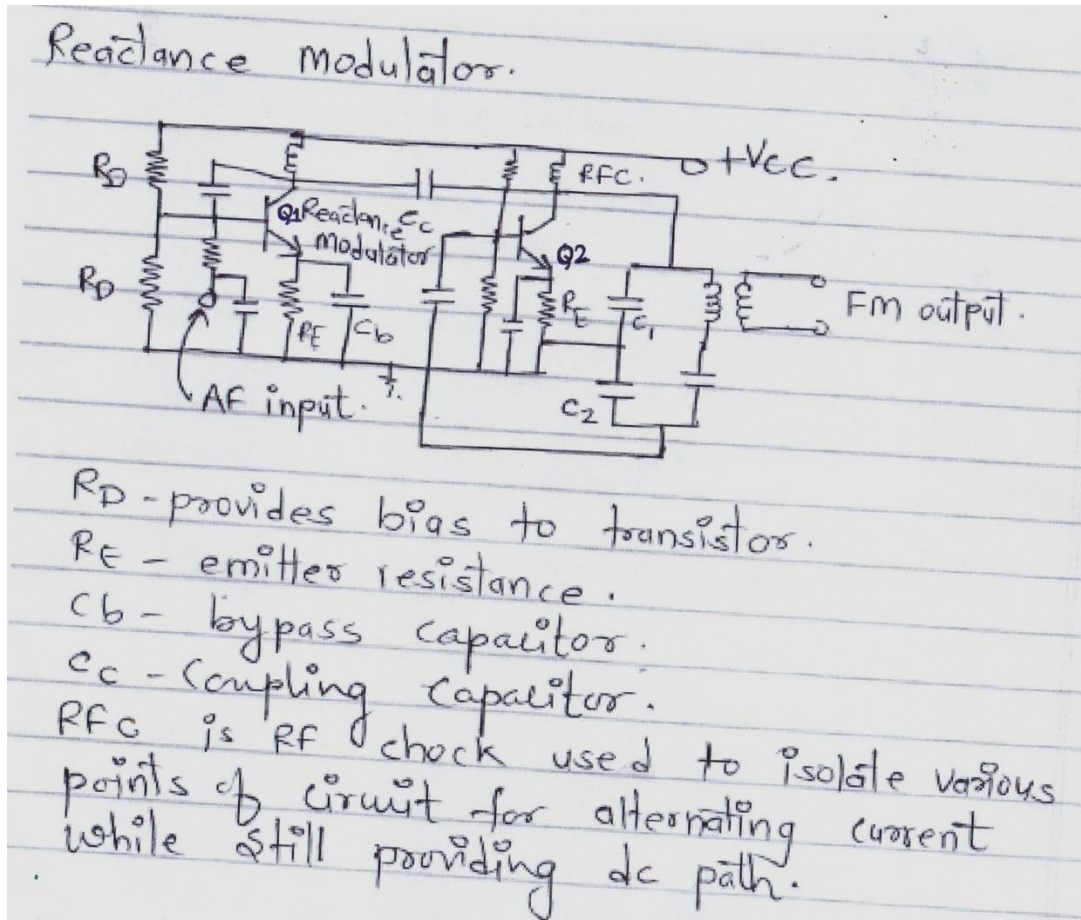 Reactance modulator.
RD
RFC.
+Vcc.
Q1 Reactance
modulator
Cc
Q2
RD
RE
Cb
RE
C1
FM output.
AF input.
C2
RD - provides bias to transistor.
RE - emitter resistance.
Cb - bypass capacitor.
Cc - Coupling capacitor.
RFC is RF chock used to isolate various
points of circuit for alternating current
while still providing dc path.